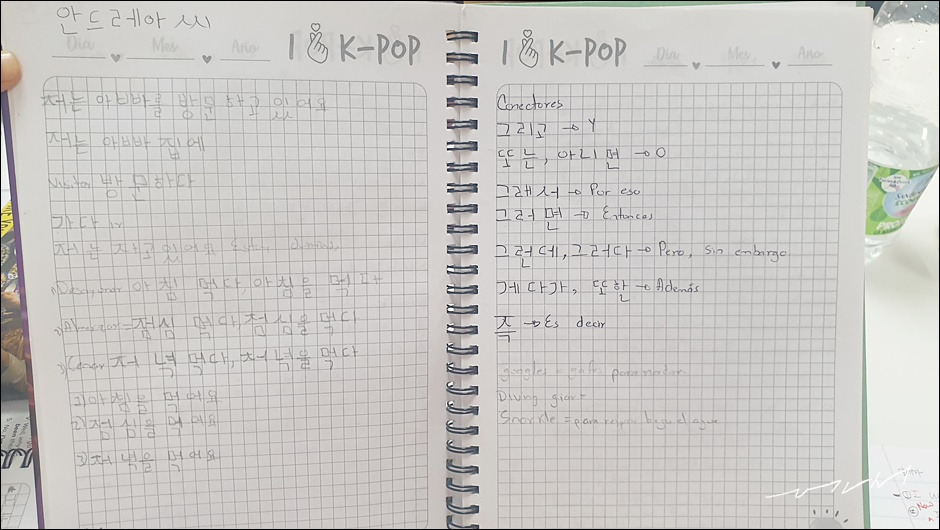 안드레아 씨
Día Mes Año
I K-POP
저는 아빠를 방문하고 있어요
저는 아빠 집에
Visitar 방문하다
가다 ir
저는 자고 있어요
1) 아침 먹다, 아침을 먹다
2) 점심 먹다, 점심을 먹다
3) Cenar 저녁 먹다, 저녁을 먹다
1) 아침을 먹어요
2) 점심을 먹어요
3) 저녁을 먹어요
I K-POP
Día Mes Año
Conectores
그리고 → Y
또는, 아니면 → O
그래서 → Por eso
그러면 → Entonces
그런데, 그러다 → Pero, sin embargo
게다가, 또한 → Además
즉 → Es decir
googles = gafas para nadar
Diving giar =
Snorkle = para respirar bajo el agua